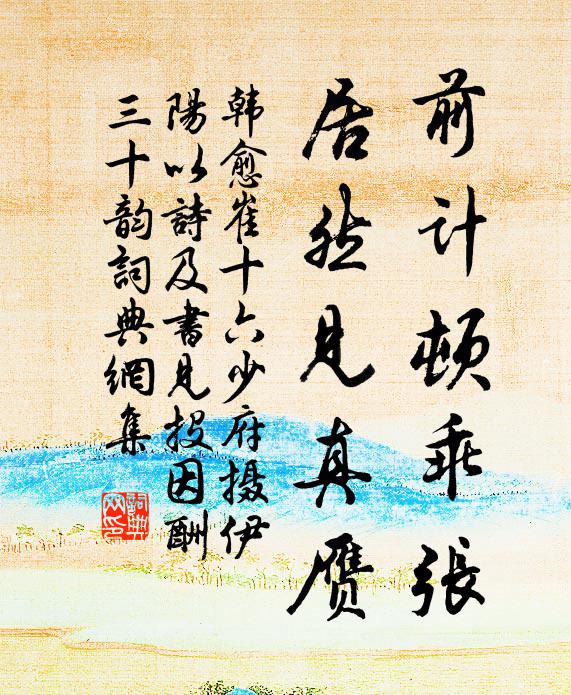 前计顿乖張
居然见真赝
韩愈崔十六少府摄伊
陽以詩及書见投因酬
三十韵詞典網集